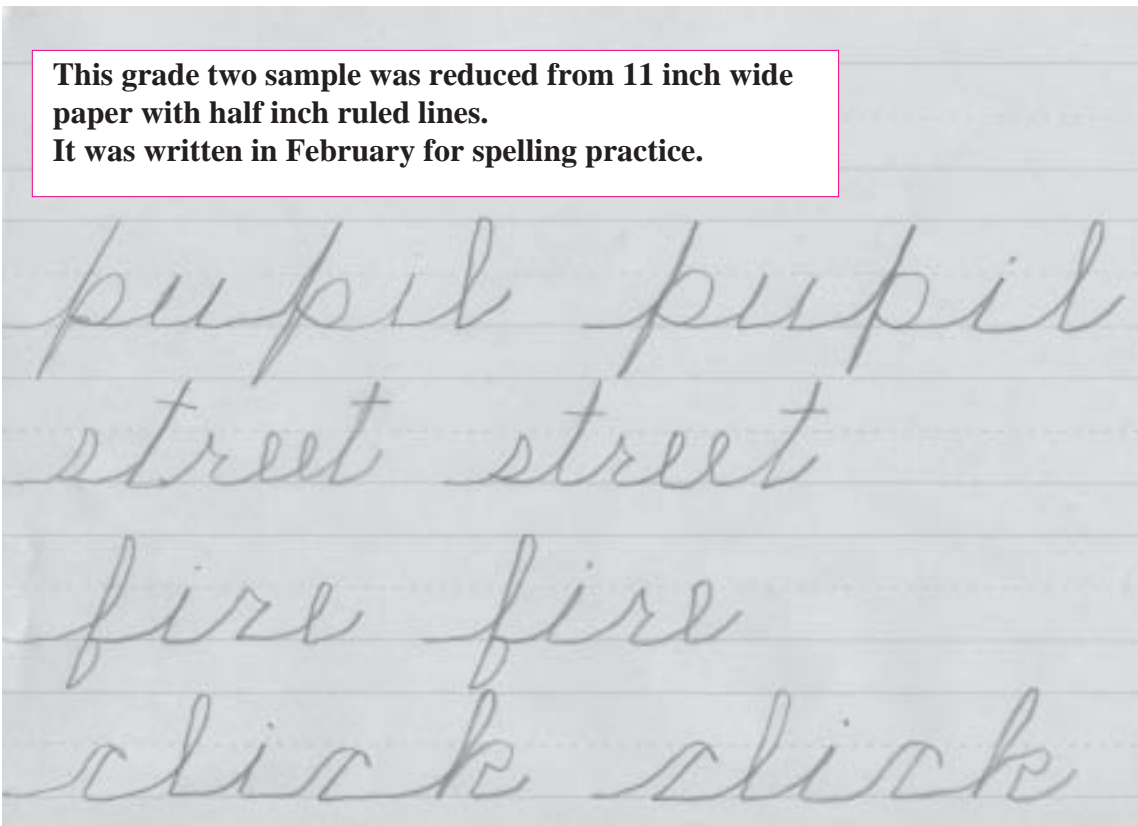 This grade two sample was reduced from 11 inch wide
paper with half inch ruled lines.
It was written in February for spelling practice.
pupil pupil
street street
fire fire
click click